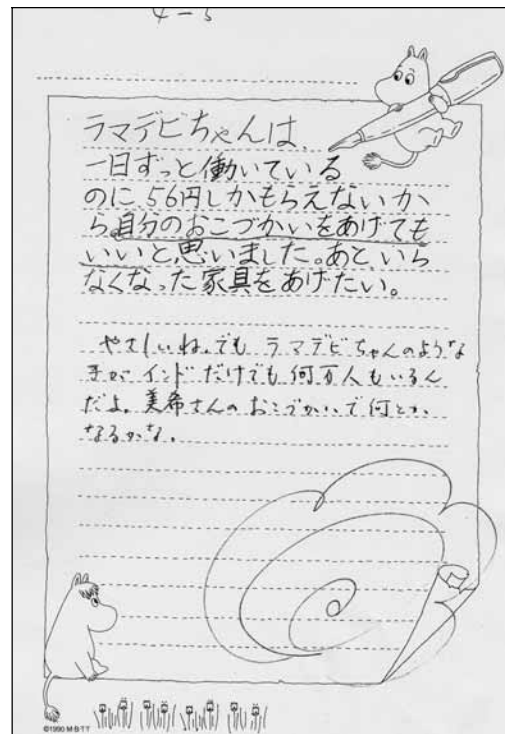 4-3
ラマデビちゃんは、
一日ずっと働いている
のに 56円しかもらえないか
ら、自分のおこづかいをあげても
いいと、思いました。あと、いら
なくなった家具をあげたい。
やさしいね。でも ラマデビちゃんのような
子が インドだけでも 何万人もいるん
だよ。美希さんの おこづかいで 何とか
なるかな。
©1990 M・B・T・T